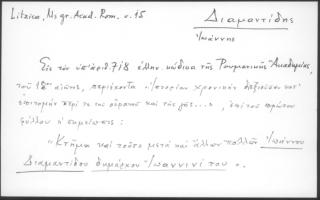 Litzica, Ms gr. Acad. Rom. σ. 15
Διαμαντίδης
Ἰωάννης
Εἰς τὸν ὑπ' ἀριθ. 718 ἑλλην. κώδικα τῆς Ρουμανικῆς Ἀκαδημίας,
τοῦ 18 αἰῶνος, περιέχοντα "Ἱστορίαν χρονικὴν δεξιοῦσαν κατ'
ἐπιτομὴν περί τε τοῦ οὐρανοῦ καὶ τῆς γῆς...", ἐπὶ τοῦ πρώτου
φύλλου ἡ σημείωσις:
"Κτῆμα καὶ τοῦτο μετὰ καὶ ἄλλων πολλῶν Ἰωάννου
Διαμαντίδου δημάρχου Ἰωαννινίτου".